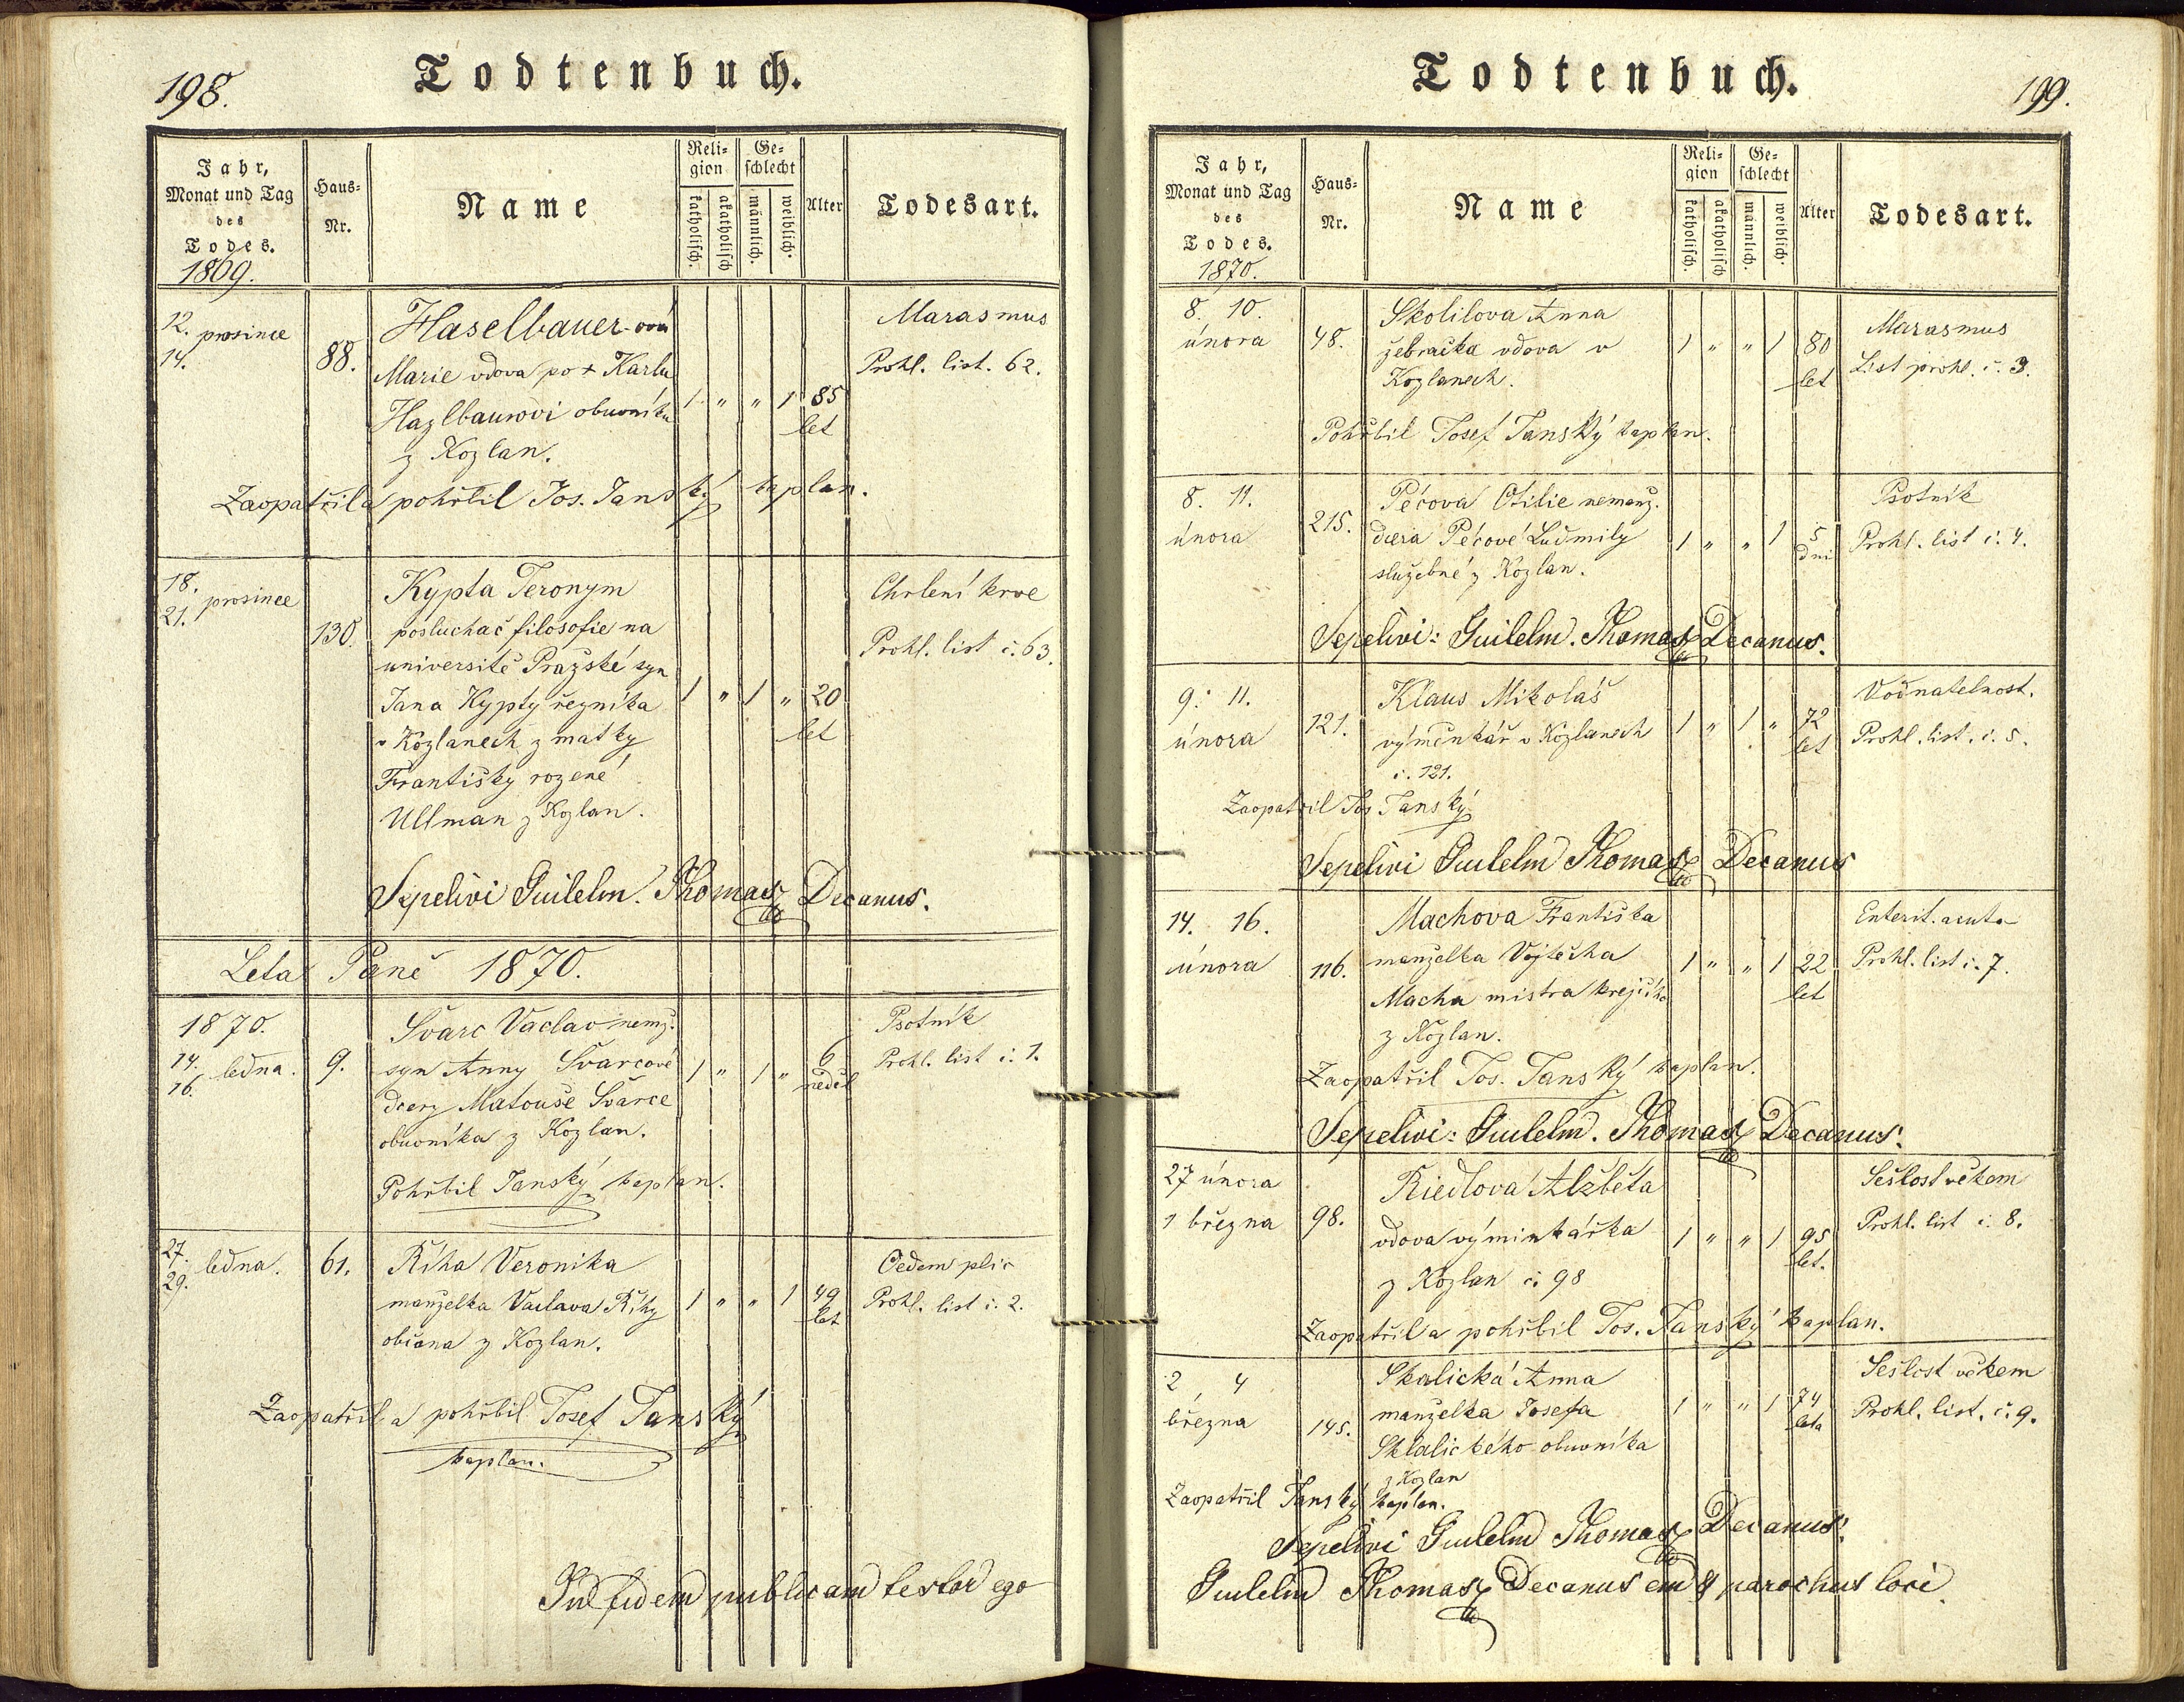 198.
Todtenbuch.
Jahr,
Monat und Tag
des
Todes.
1869.
Haus-
Nr.
Name
Reli-
gion
katholisch.
akatholisch
Ge-
schlecht
männlich.
weiblich.
Alter
Todesart.
12. prosince
14.
88.
Haselbauer-ová
Marie vdova po + Karlu
Hazlbaurovi obuvníku
z Kozlan.
1 " " 1 85
let
Marasmus
Prohl. list. 62.
Zaopatřil a pohřbil Jos. Janský kaplan.
18. prosince
21.
130.
Kypta Jeronym
posluchač filosofie na
universitě Pražské syn
Jana Kypty řezníka
v Kozlanech z matky
Františky rozené
Ullman z Kozlan.
1 " 1 " 20
let
Chrlení krve
Prohl. list č. 63.
Sepelivi Guilelm. Thomas Decanus.
Leta Paně 1870.
1870.
14. ledna.
16.
9.
Švarc Vaclav nemž.
syn Anny Švarcové
dcery Matouše Švarce
obuvníka z Kozlan.
1 " 1 " 6
neděl
Psotník
Prohl. list č. 1.
Pohřbil Janský kaplan.
27. ledna.
29.
61.
Říha Veronika
manželka Vaclava Říhy
občana z Kozlan.
1 " " 1 49
let
Oedem plic
Prohl. list č. 2.
Zaopatřil a pohřbil Josef Janský
kaplan.
In fidem publicam testor ego
Todtenbuch.
199.
Jahr,
Monat und Tag
des
Todes.
1870.
Haus-
Nr.
Name
Reli-
gion
katholisch.
akatholisch
Ge-
schlecht
männlich.
weiblich.
Alter
Todesart.
8. 10.
února
48.
Skolilova Anna
žebračka vdova v
Kozlanech.
1 " " 1 80
let
Marasmus
List prohl. č. 3.
Pohřbil Josef Janský kaplan.
8. 11.
února
215.
Pécova Otilie nemanž.
dcera Pécové Ludmily
služebné z Kozlan.
1 " " 1 5
dni
Psotník
Prohl. list č. 4.
Sepelivi: Guilelm. Thomas Decanus.
9. 11.
února
121.
Klaus Mikoláš
výměnkář v Kozlanech
č. 121.
1 " 1 " 72
let
Vodnatelnost.
Prohl. list. č. 5.
Zaopatřil Jos Janský
Sepelivi Guilelm Thomas Decanus
14. 16.
února
116.
Machova Františka
manželka Vojtěcha
Macha mistra krejčího
z Kozlan.
1 " " 1 22
let
Enterit. acuta
Prohl. list č. 7.
Zaopatřil Jos. Janský kaplan.
Sepelivi: Guilelm. Thomas Decanus.
27 února
1 března
98.
Riedlova Alžběta
vdova výminkářka
z Kozlan č. 98
1 " " 1 95
let.
Sešlost věkem
Prohl. list č. 8.
Zaopatřil a pohřbil Jos. Janský kaplan.
2 4
března
145.
Skalická Anna
manželka Josefa
Sklalického obuvníka
z Kozlan
1 " " 1 74
leta
Sešlost věkem
Prohl. list. č. 9.
Zaopatřil Janský kaplan.
Sepelivi Guilelm Thomas Decanus.
Guilelm Thomas Decanus parochus loci.